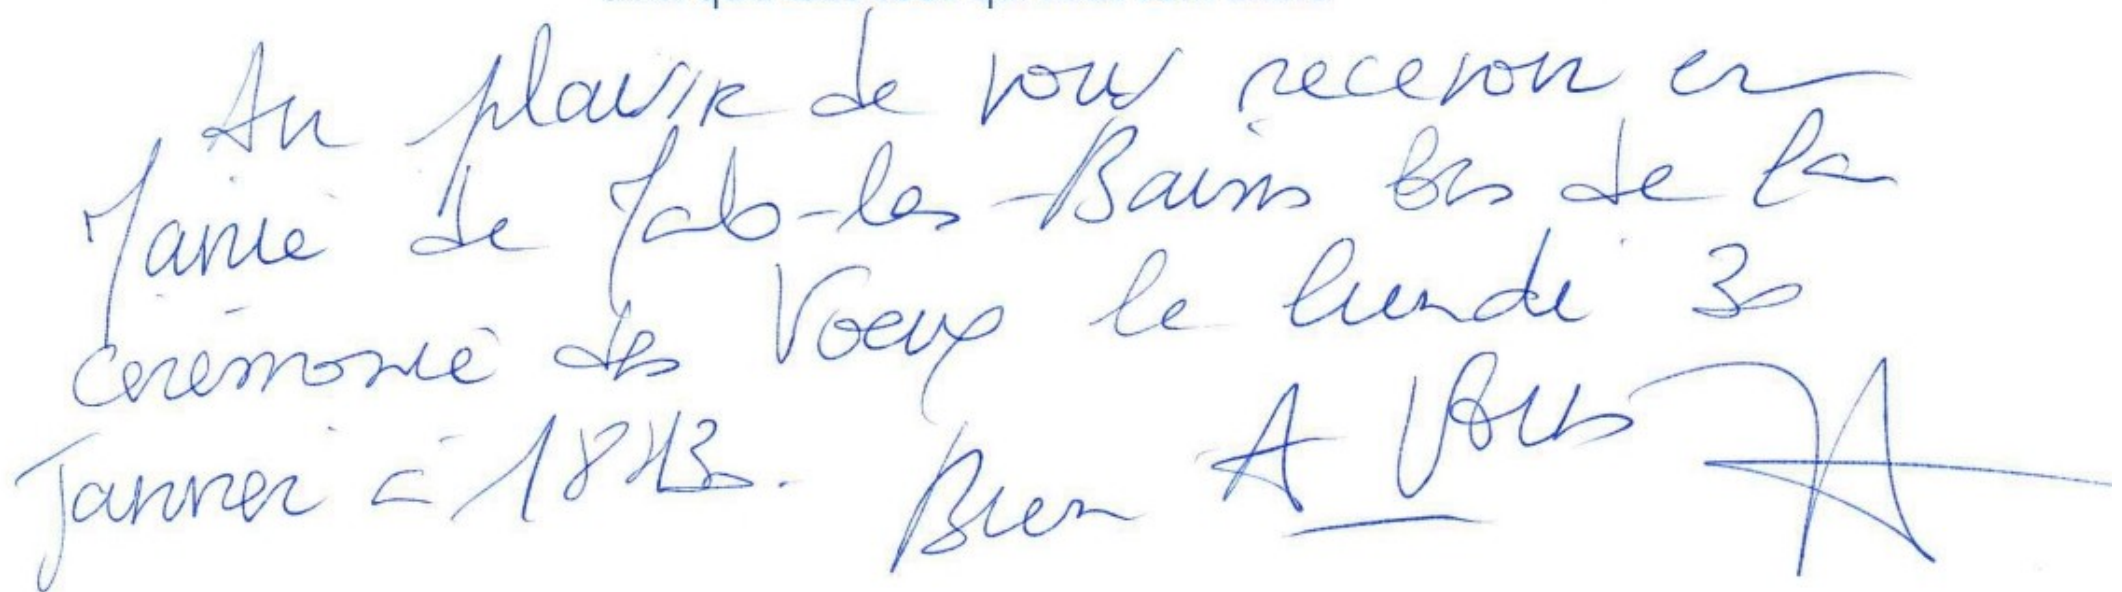 Au plaisir de vous recevoir en
Mairie de Malo-les-Bains lors de la
cérémonie des Voeux le lundi 30
Janvier à 18H30. Bien A Vous